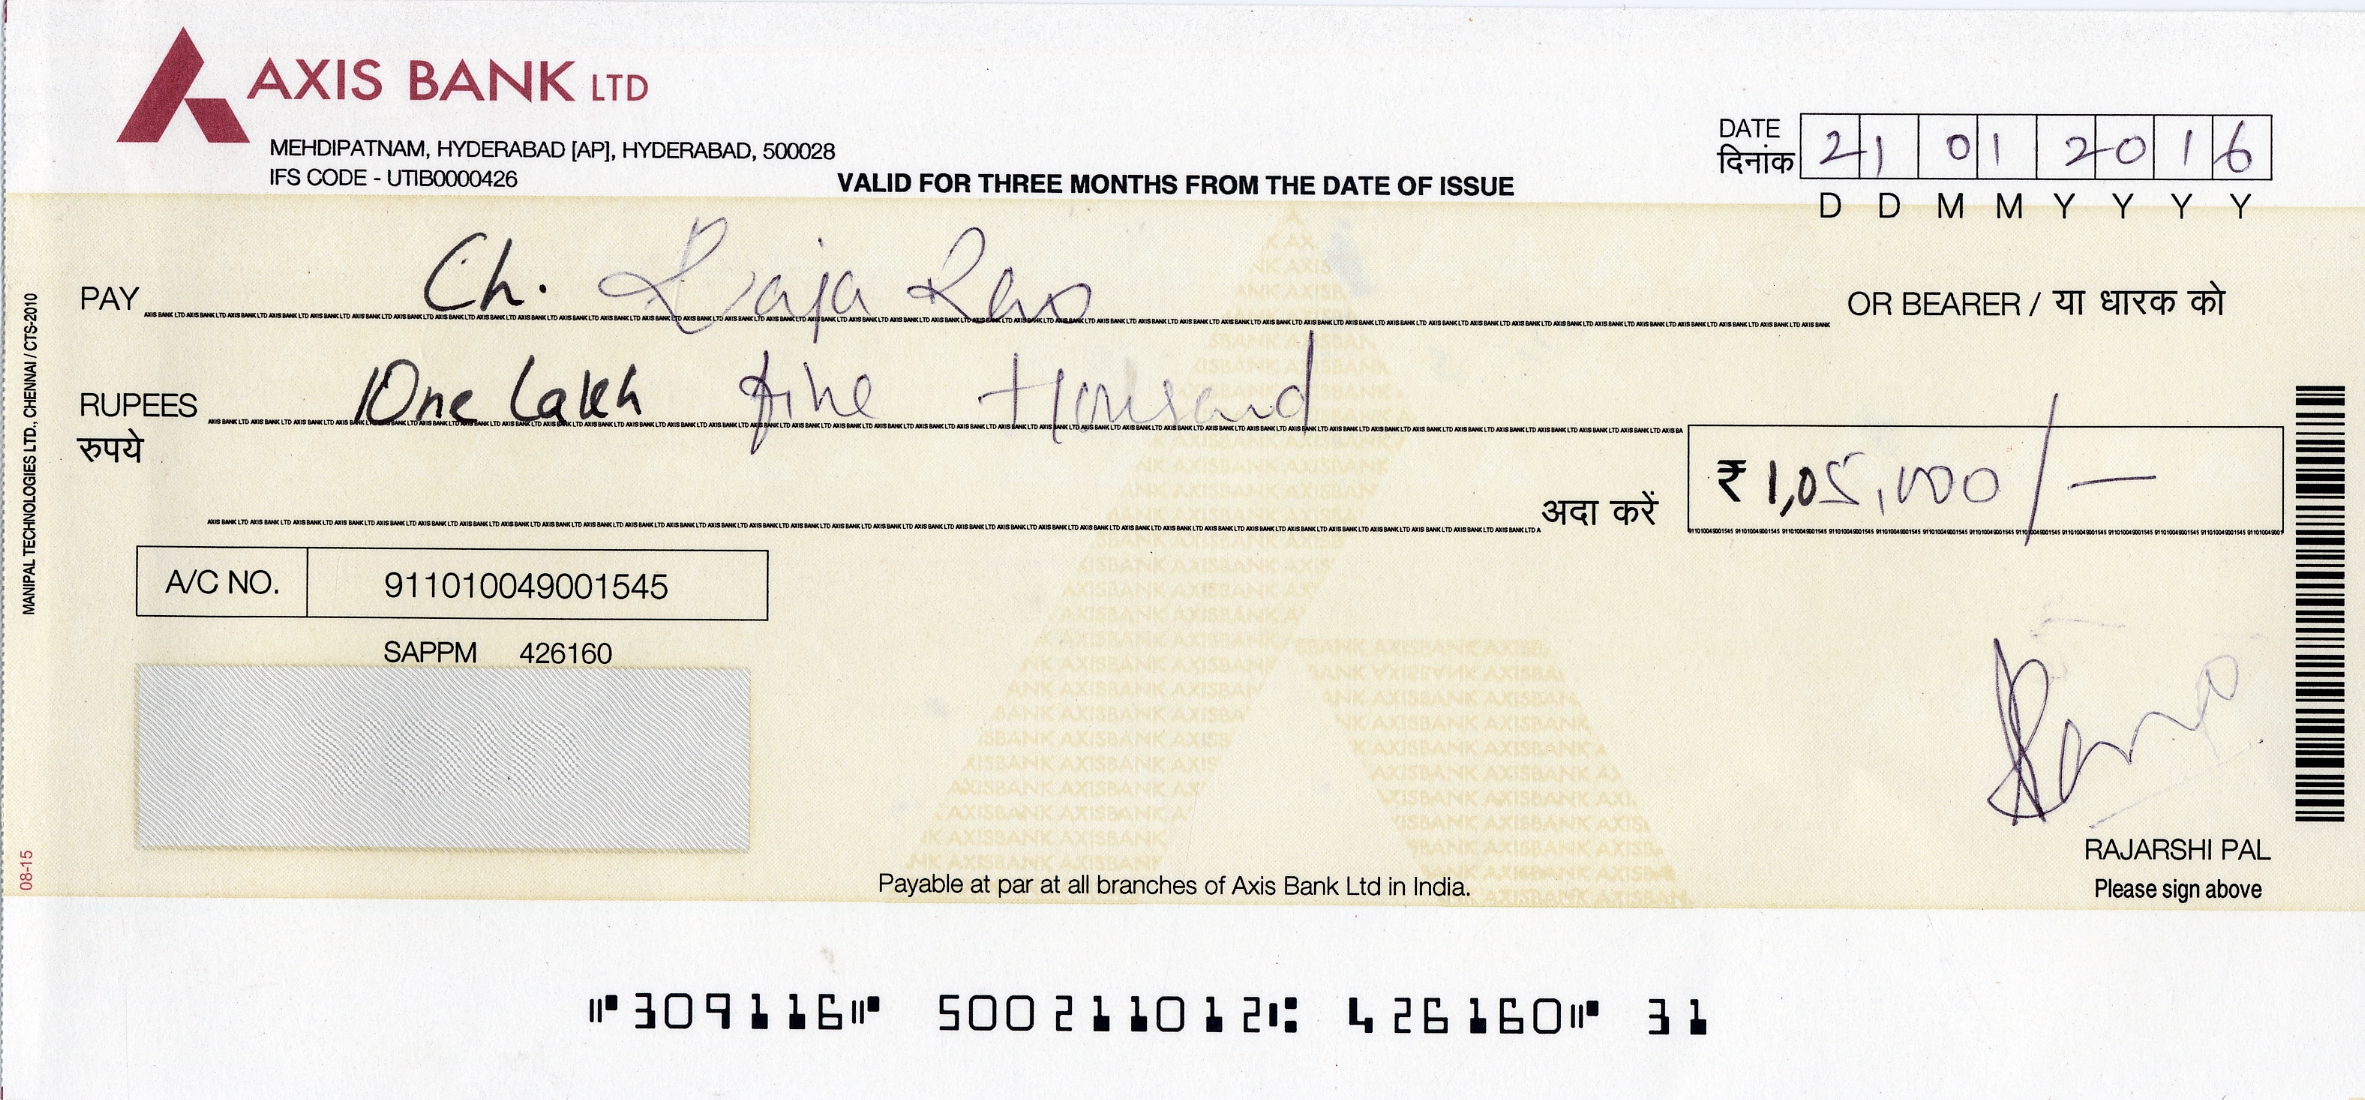 AXIS BANK LTD
MEHDIPATNAM, HYDERABAD [AP], HYDERABAD, 500028
IFS CODE - UTIB0000426
VALID FOR THREE MONTHS FROM THE DATE OF ISSUE
DATE
दिनांक
21 01 2016
D D M M Y Y Y Y
PAY Ch. Raja Rao OR BEARER / या धारक को
RUPEES One Lakh five thousand
रुपये
अदा करें ₹ 1,05,000/-
A/C NO. 911010049001545
SAPPM 426160
VOID
RAJARSHI PAL
Please sign above
Payable at par at all branches of Axis Bank Ltd in India.
MANIPAL TECHNOLOGIES LTD., CHENNAI / CTS-2010
08-15
⑈309116⑈ 500211012⑆ 426160⑈ 31